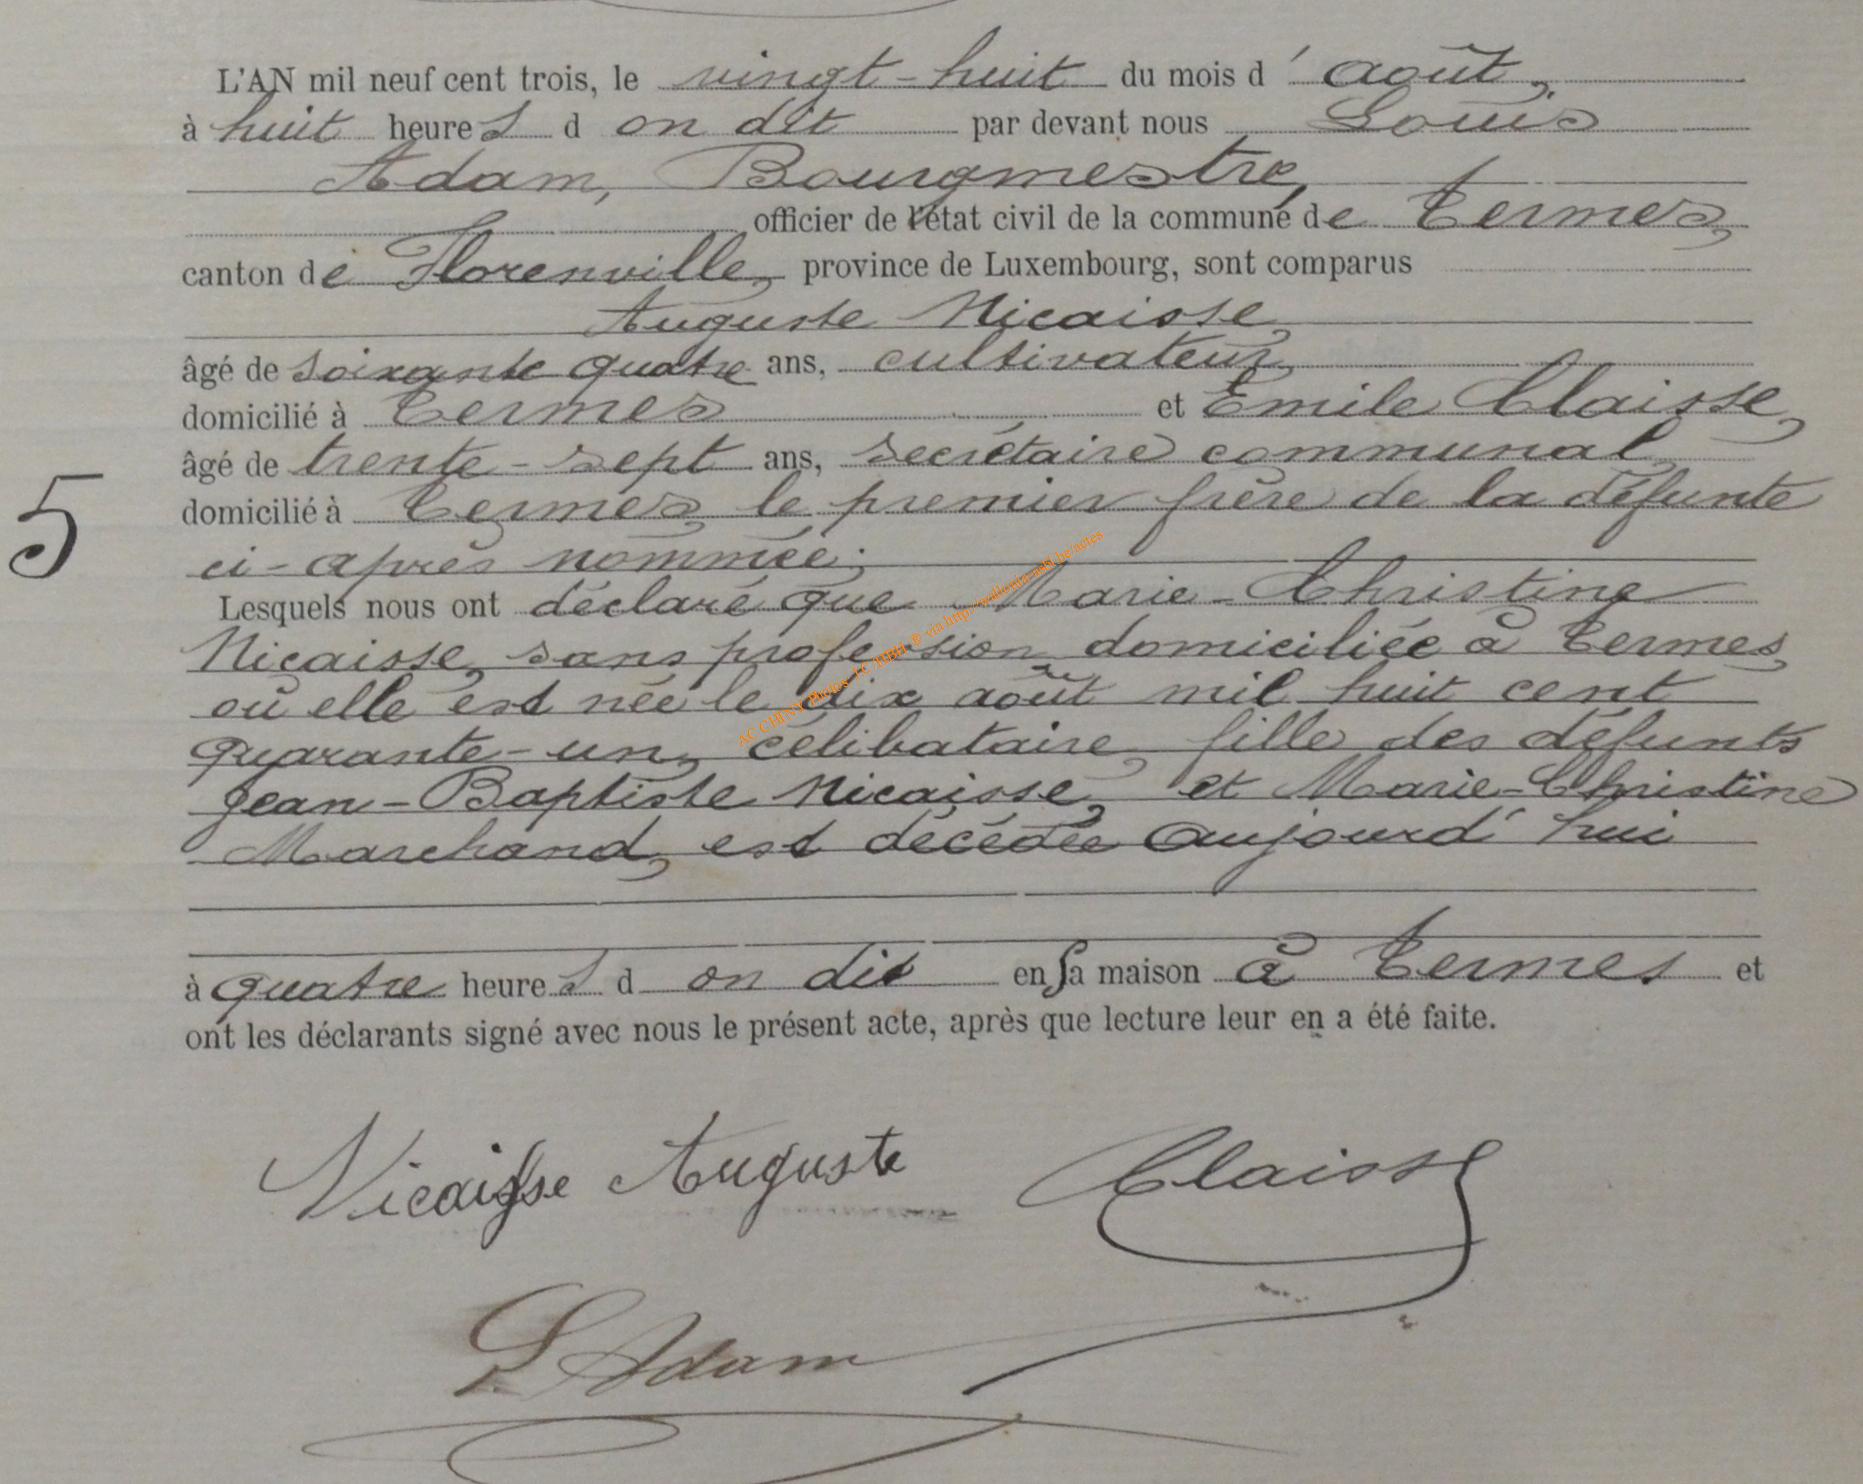 L'AN mil neuf cent trois, le vingt-huit du mois d'août,
à huit heures d on dit par devant nous Louis
Adam, Bourgmestre,
officier de l'état civil de la commune de Termes,
canton de Florenville, province de Luxembourg, sont comparus
Auguste Nicaisse,
âgé de soixante quatre ans, cultivateur,
domicilié à Termes et Emile Claisse,
âgé de trente-sept ans, secrétaire communal
domicilié à Termes, le premier frère de la défunte
5
ci-après nommée;
Lesquels nous ont déclaré que Marie-Christine
Nicaisse, sans profession domiciliée à Termes,
où elle est née le dix août mil huit cent
quarante-un, célibataire, fille des défunts
Jean-Baptiste Nicaisse, et Marie-Christine
Marchand, est décédée aujourd'hui
à quatre heures d on dit en sa maison à Termes et
ont les déclarants signé avec nous le présent acte, après que lecture leur en a été faite.
Nicaisse Auguste Claisse
L Adam
AC CHINY Photos J.C. HBH ® via http:/